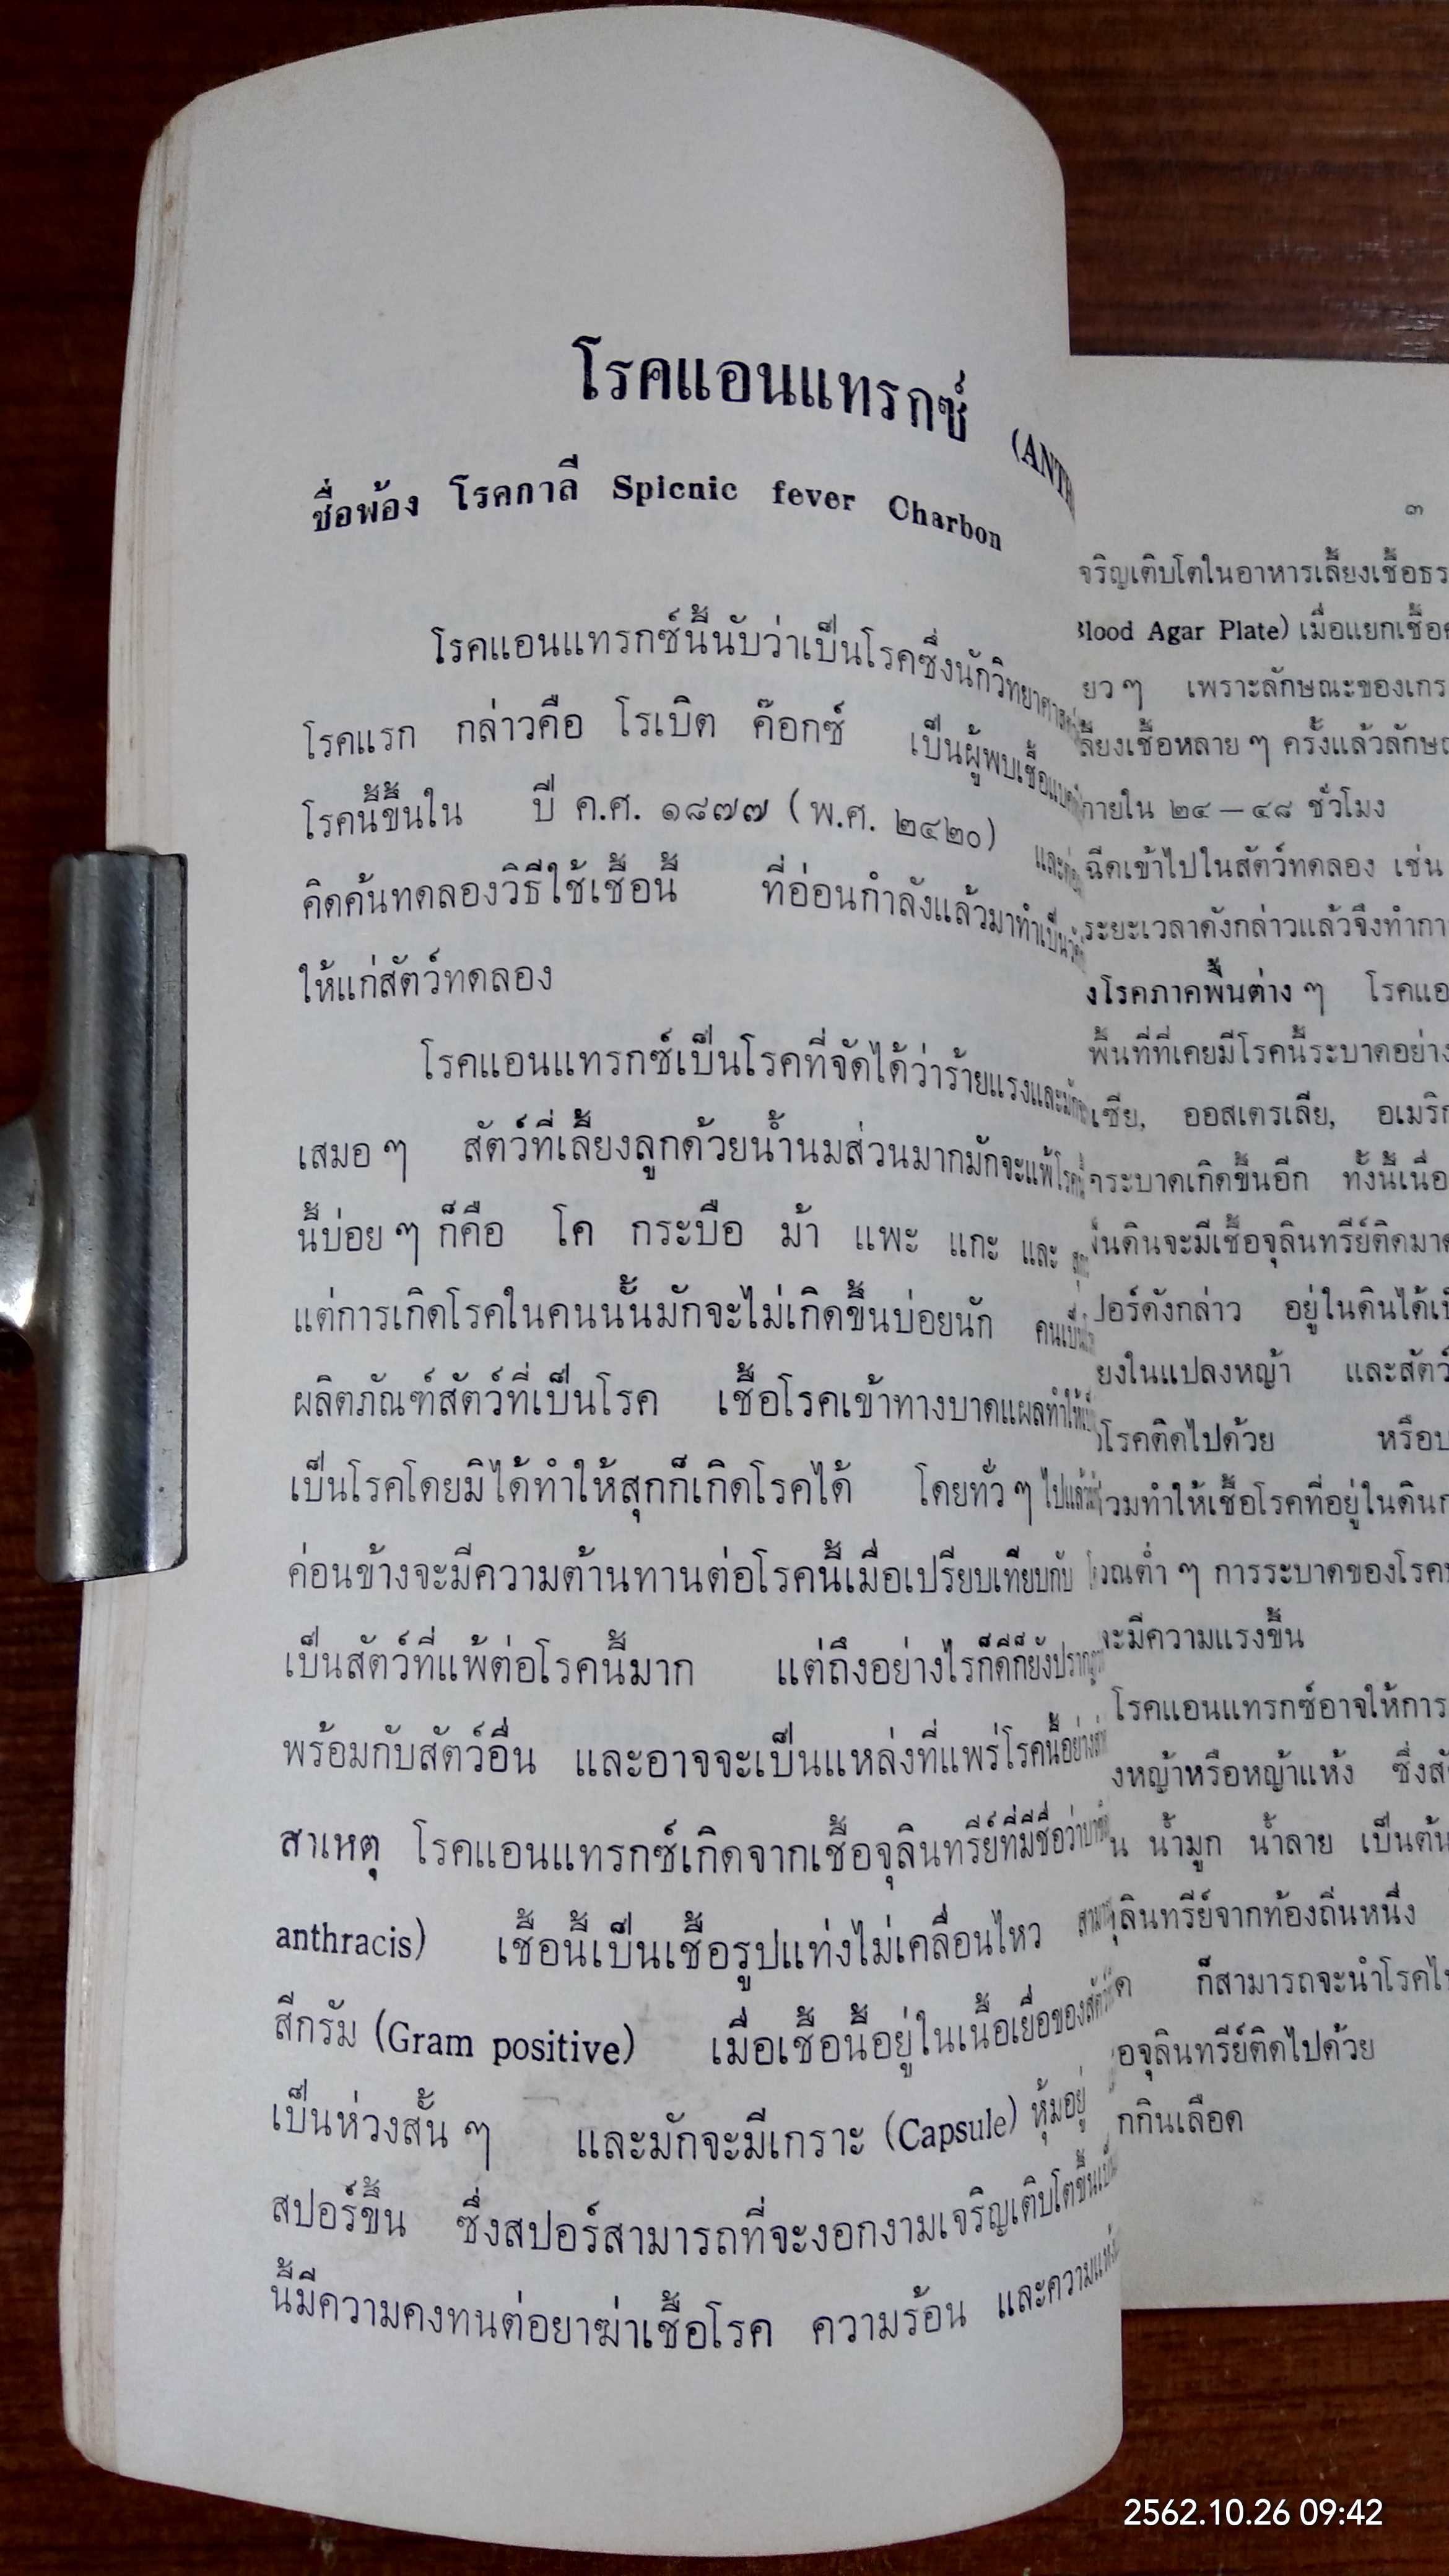 โรคแอนแทรกซ์ (ANTH
ชื่อพ้อง โรคกาลี Spicnic fever Charbon
โรคแอนแทรกซ์นี้นับว่าเป็นโรคซึ่งนักวิทยาศาสตร์
โรคแรก กล่าวคือ โรเบิต ค๊อกซ์ เป็นผู้พบเชื้อ
โรคนี้ขึ้นใน ปี ค.ศ. ๑๘๗๗ (พ.ศ. ๒๔๒๐) และ
คิดค้นทดลองวิธีใช้เชื้อนี้ ที่อ่อนกำลังแล้วมาทำเป็น
ให้แก่สัตว์ทดลอง
โรคแอนแทรกซ์เป็นโรคที่จัดได้ว่าร้ายแรงและ
เสมอ ๆ สัตว์ที่เลี้ยงลูกด้วยน้ำนมส่วนมากมักจะแพ้
นี้บ่อย ๆ ก็คือ โค กระบือ ม้า แพะ แกะ และ
แต่การเกิดโรคในคนนั้นมักจะไม่เกิดขึ้นบ่อยนัก คนเป็น
ผลิตภัณฑ์สัตว์ที่เป็นโรค เชื้อโรคเข้าทางบาดแผลทำให้
เป็นโรคโดยมิได้ทำให้สุกก็เกิดโรคได้ โดยทั่ว ๆ ไปแล้ว
ค่อนข้างจะมีความต้านทานต่อโรคนี้เมื่อเปรียบเทียบกับ
เป็นสัตว์ที่แพ้ต่อโรคนี้มาก แต่ถึงอย่างไรก็ดีก็ยัง
พร้อมกับสัตว์อื่น และอาจจะเป็นแหล่งที่แพร่โรคนี้
สาเหตุ โรคแอนแทรกซ์เกิดจากเชื้อจุลินทรีย์ที่มีชื่อว่า
anthracis) เชื้อนี้เป็นเชื้อรูปแท่งไม่เคลื่อนไหว
สีกรัม (Gram positive) เมื่อเชื้อนี้อยู่ในเนื้อเยื่อของ
เป็นห่วงสั้น ๆ และมักจะมีเกราะ (Capsule) หุ้มอยู่
สปอร์ขึ้น ซึ่งสปอร์สามารถที่จะงอกงามเจริญเติบโตขึ้น
นี้มีความคงทนต่อยาฆ่าเชื้อโรค ความร้อน และความ
๓
จริญเติบโตในอาหารเลี้ยงเชื้อธร
Blood Agar Plate) เมื่อแยกเชื้อ
ยว ๆ เพราะลักษณะของเกร
ลี้ยงเชื้อหลาย ๆ ครั้งแล้วลักษ
ภายใน ๒๔ — ๔๘ ชั่วโมง
ฉีดเข้าไปในสัตว์ทดลอง เช่น
ระยะเวลาดังกล่าวแล้วจึงทำกา
งโรคภาคพื้นต่าง ๆ โรคแอ
พื้นที่ที่เคยมีโรคนี้ระบาดอย่าง
เซีย, ออสเตรเลีย, อเมริก
กระบาดเกิดขึ้นอีก ทั้งนี้เนื่อ
ในดินจะมีเชื้อจุลินทรีย์ติดมา
ปอร์ดังกล่าว อยู่ในดินได้
ยงในแปลงหญ้า และสัตว์
โรคติดไปด้วย หรือ
่วมทำให้เชื้อโรคที่อยู่ในดิน
วณต่ำ ๆ การระบาดของโรค
จะมีความแรงขึ้น
โรคแอนแทรกซ์อาจให้การ
งหญ้าหรือหญ้าแห้ง ซึ่ง
น น้ำมูก น้ำลาย เป็นต้น
ุลินทรีย์จากท้องถิ่นหนึ่ง
ค ก็สามารถจะนำโรคไ
อจุลินทรีย์ติดไปด้วย
กกินเลือด
2562.10.26 09:42